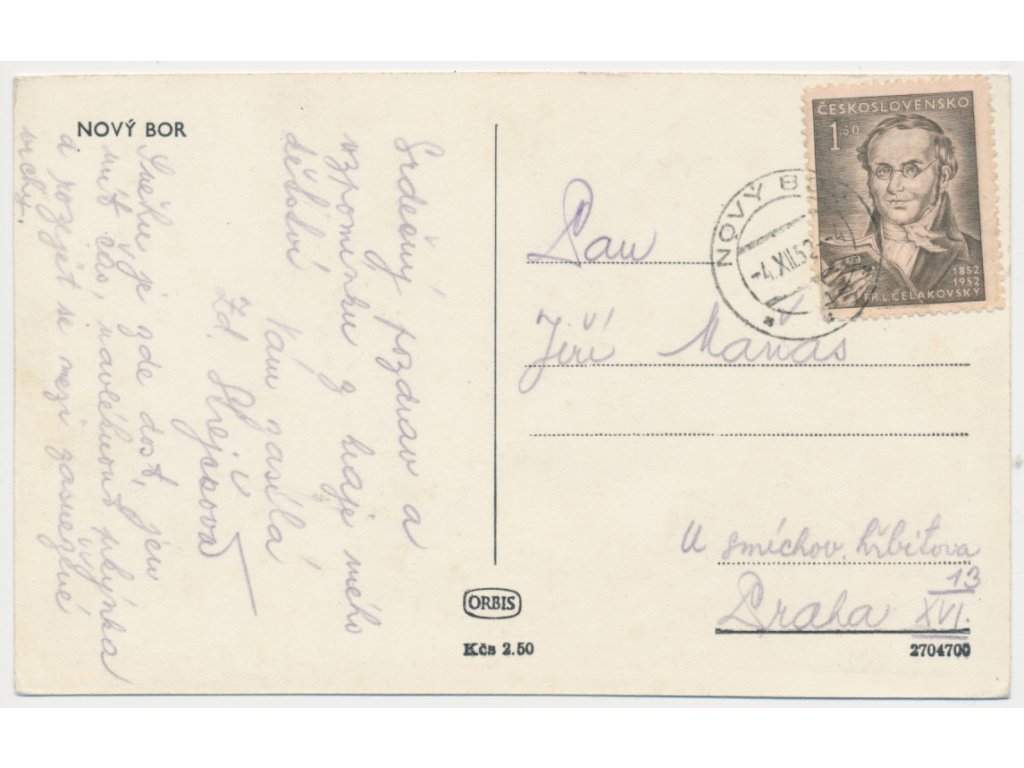 NOVÝ BOR
Srdečný pozdrav a
vzpomínku z kraje mého
dětství
Vám zasílá
Zd.
Sněhu je zde dost, jen
mít čas, navléknout
a rozejít se mezi zasněžené
vrchy.
ČESKOSLOVENSKO
1.50
1852
1952
FR. L. ČELAKOVSKÝ
NOVÝ B
-4.XII.52
Pan
Jiří Maňas
U smíchov. hřbitova
13
Praha XVI.
ORBIS
Kčs 2.50
2704700